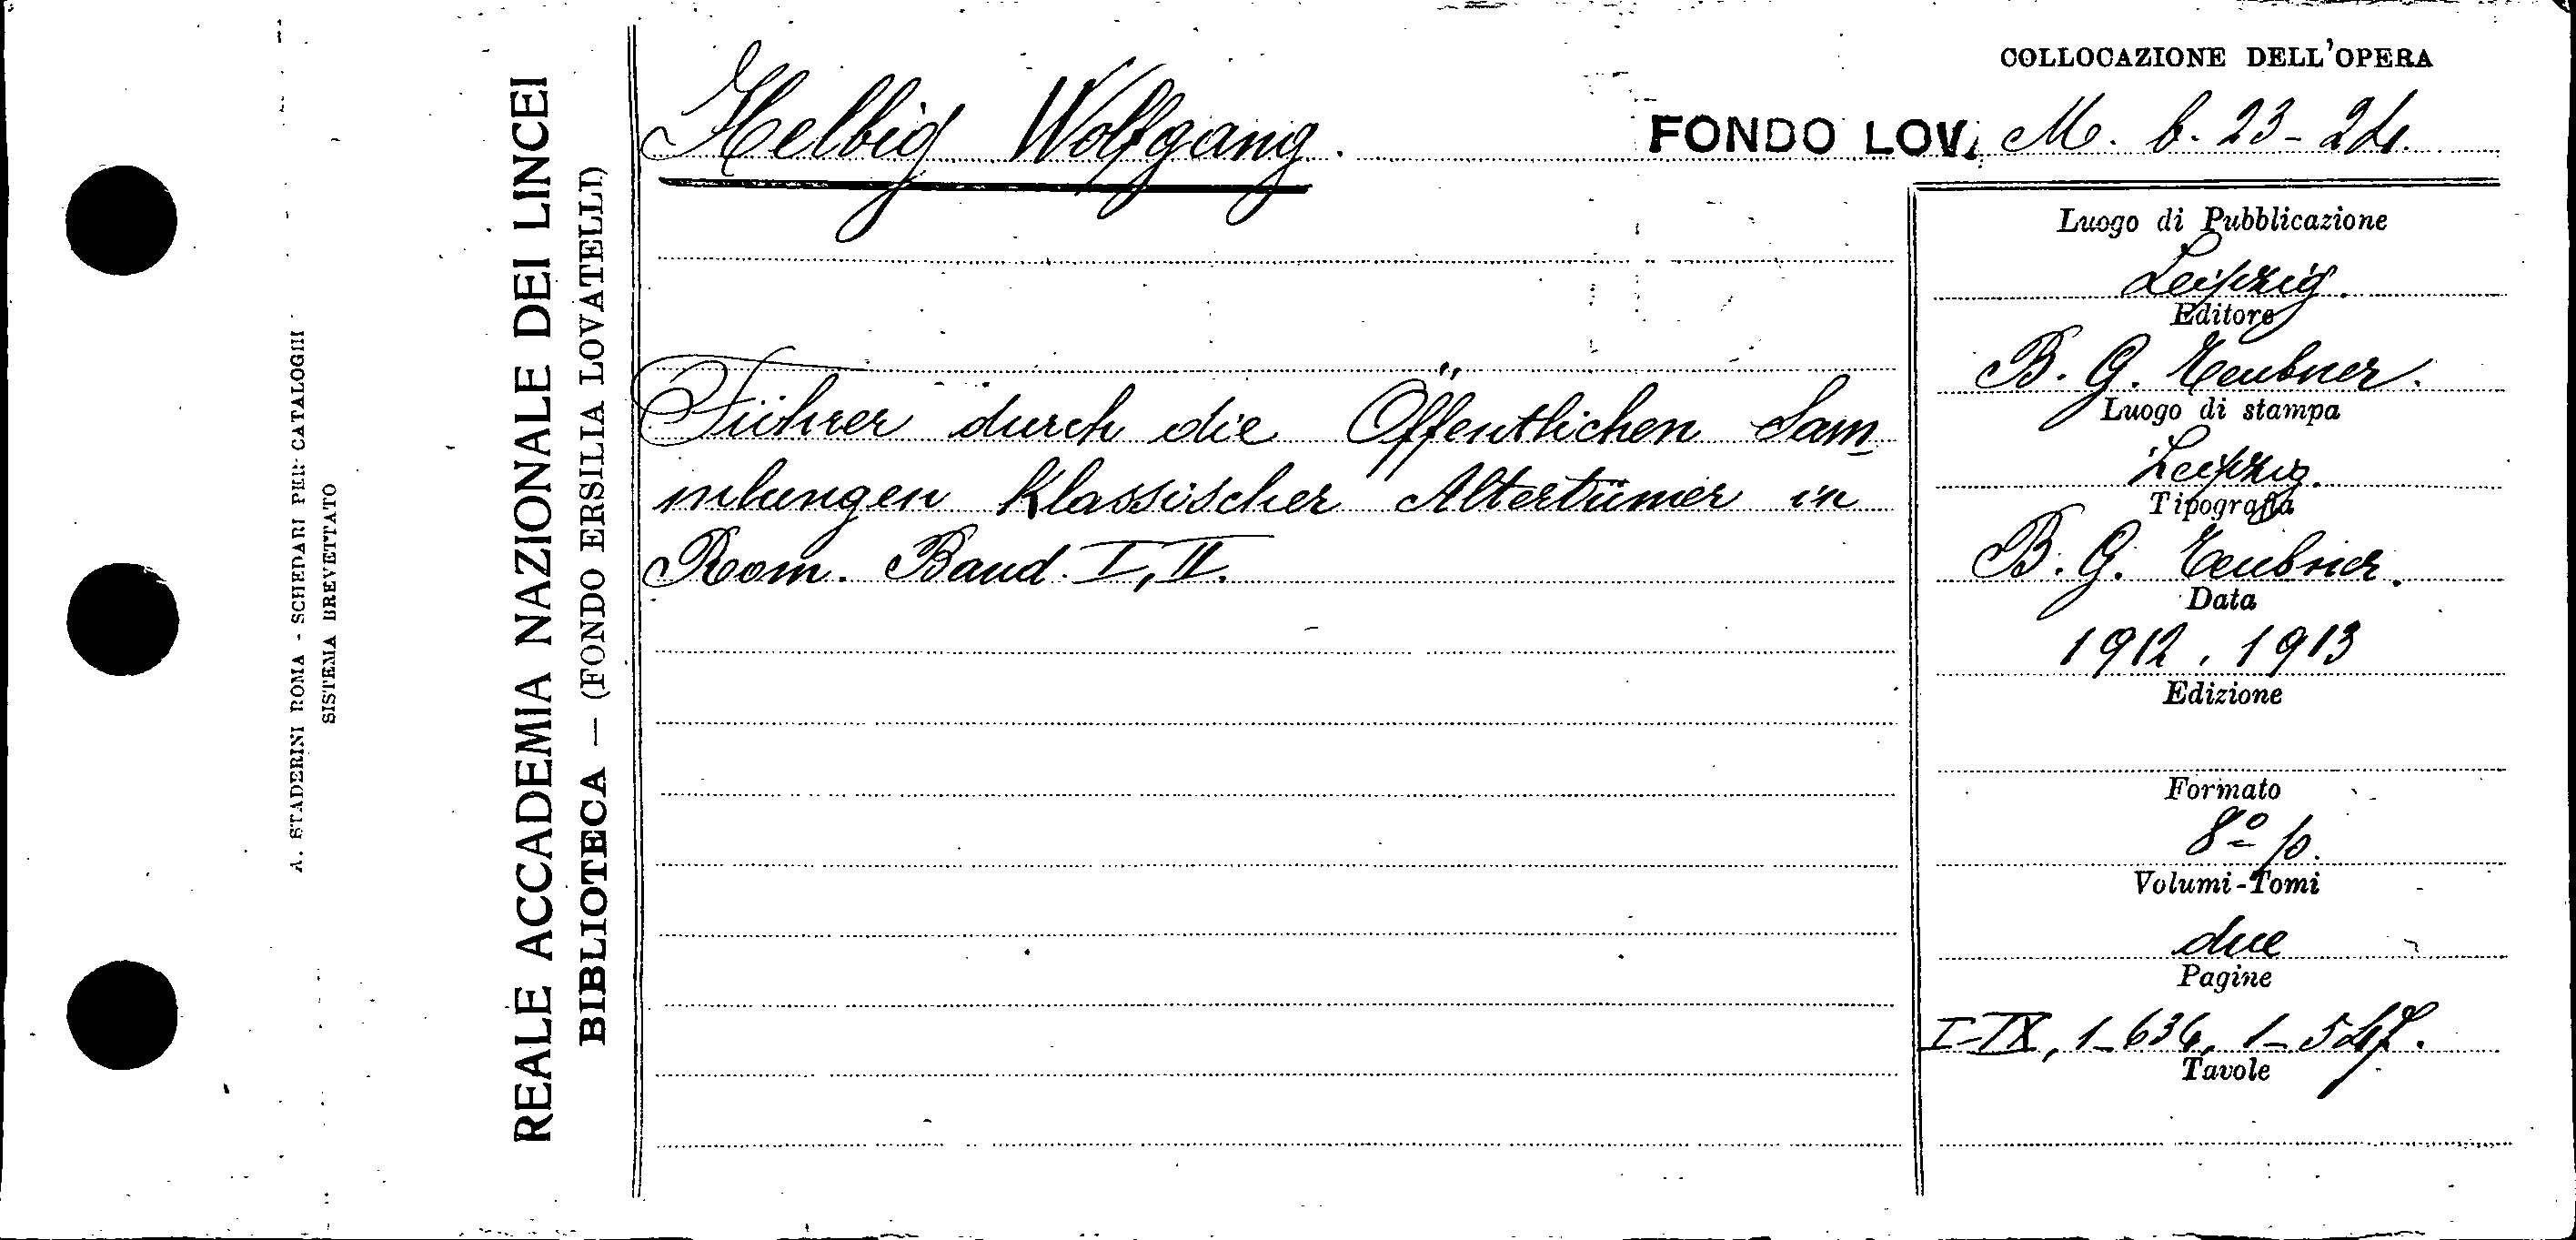 A. STADERINI ROMA - SCHEDARI PER CATALOGHI
SISTEMA BREVETTATO
REALE ACCADEMIA NAZIONALE DEI LINCEI
BIBLIOTECA — (FONDO ERSILIA LOVATELLI)
Helbig Wolfgang.
COLLOCAZIONE DELL'OPERA
FONDO LOV. M. b. 23-24.
Führer durch die Öffentlichen Sam-
mlungen Klassischer Altertümer in
Rom. Band. I, II.
Luogo di Pubblicazione
Leipzig.
Editore
B. G. Teubner.
Luogo di stampa
Leipzig.
Tipografia
B. G. Teubner.
Data
1912. 1913
Edizione
Formato
8º p.
Volumi-Tomi
due
Pagine
I-IX, 1-636, 1-547.
Tavole